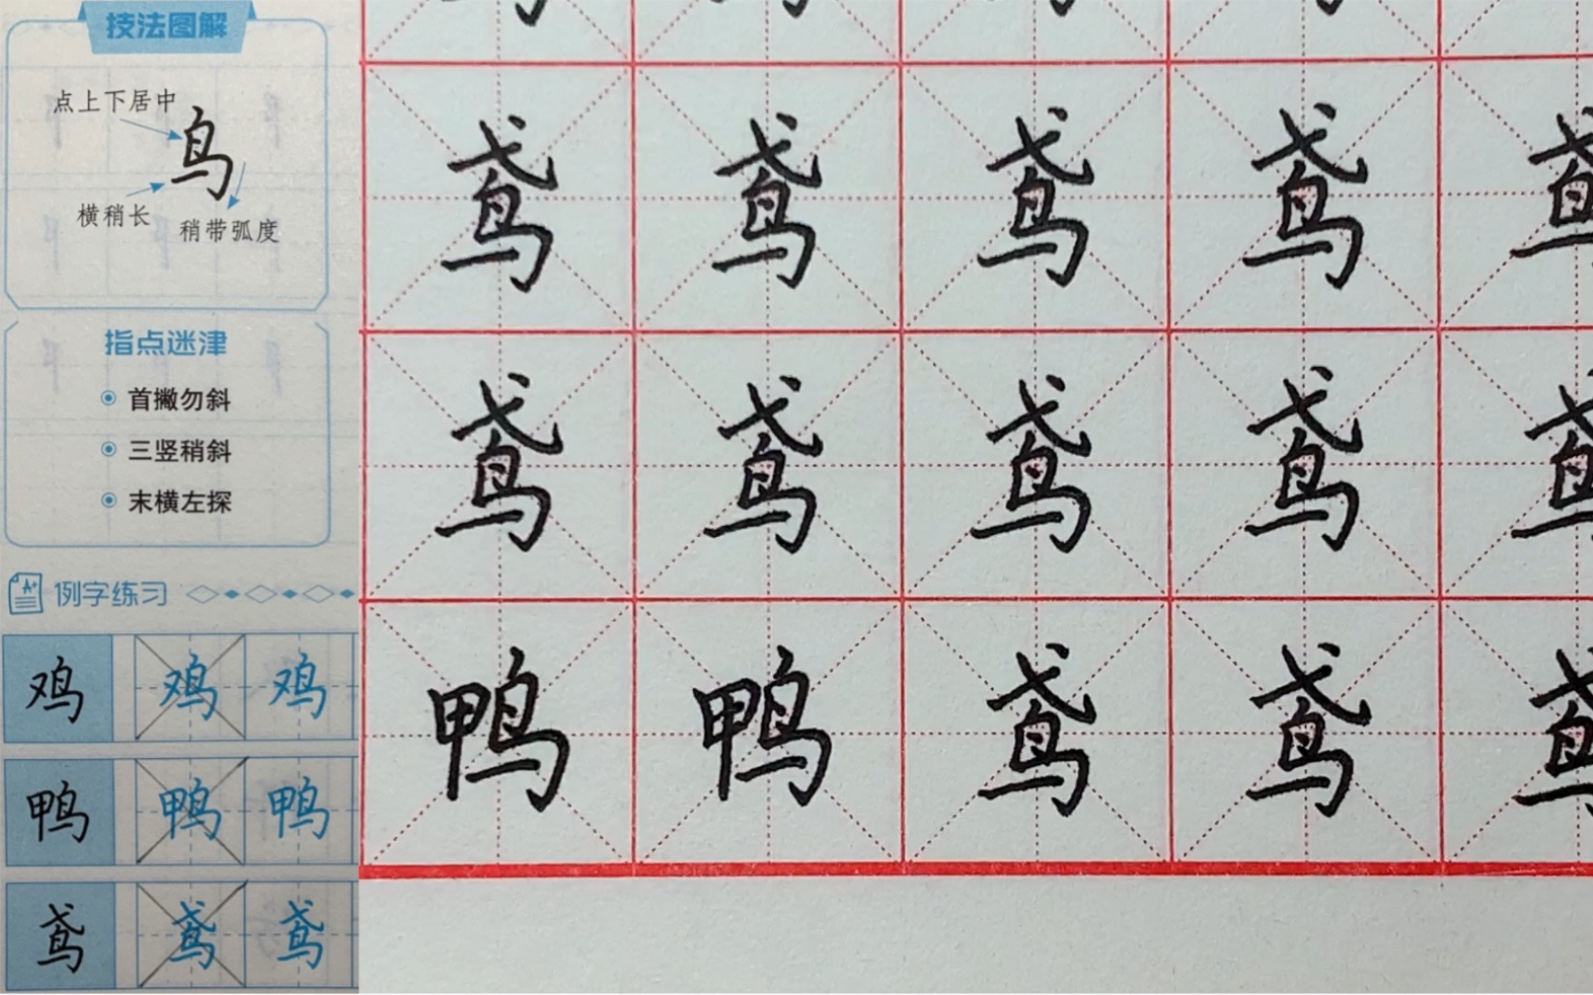 技法图解
点上下居中
鸟
横稍长
稍带弧度
指点迷津
首撇勿斜
三竖稍斜
末横左探
例字练习
鸡 鸡 鸡
鸭 鸭 鸭
鸢 鸢 鸢
鸢 鸢 鸢 鸢 鸢
鸢 鸢 鸢 鸢 鸢
鸭 鸭 鸢 鸢 鸢